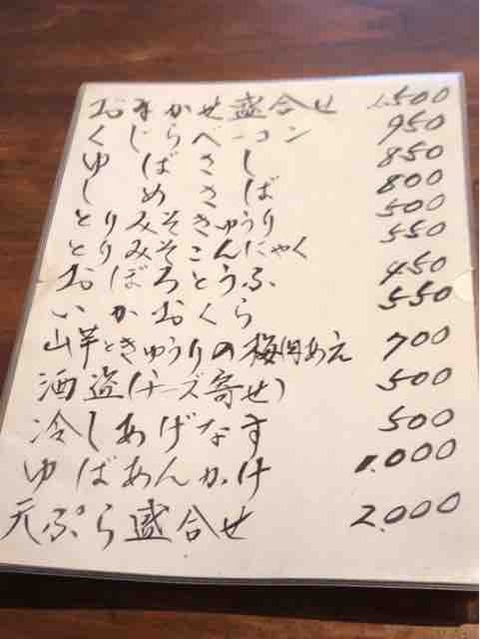 おまかせ盛合せ 1.500
くじらベーコン 950
ゆばさし 850
しめさば 800
とりみそきゅうり 500
とりみそこんにゃく 550
おぼろとうふ 450
いかおくら 550
山芋ときゅうりの梅肉あえ 700
酒盗(チーズ寄せ) 500
冷しあげなす 500
ゆばあんかけ 1.000
天ぷら盛合せ 2.000